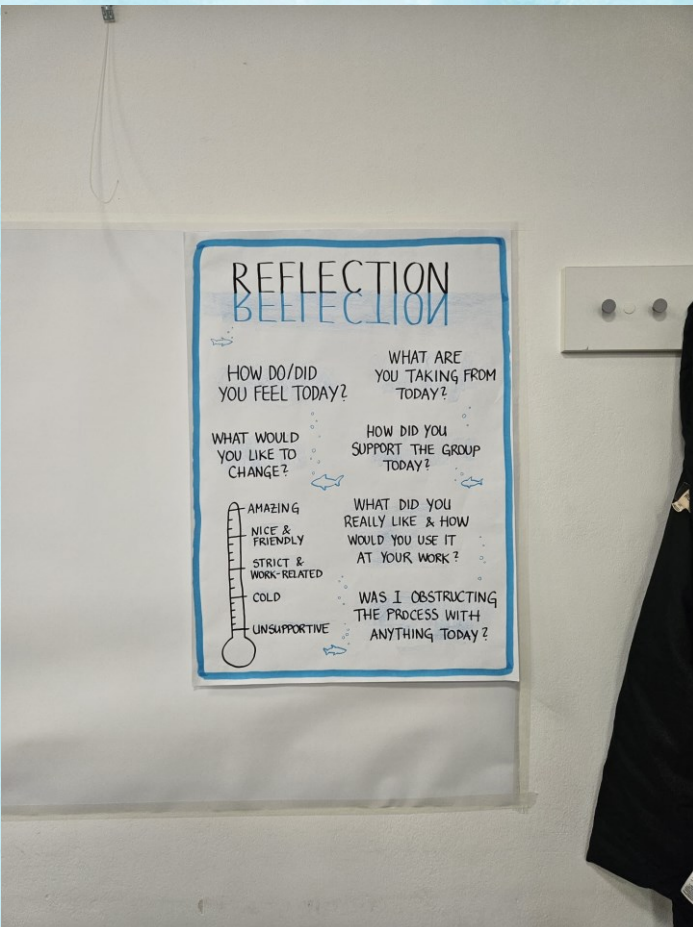 REFLECTION
HOW DO/DID
YOU FEEL TODAY?
WHAT ARE
YOU TAKING FROM
TODAY?
WHAT WOULD
YOU LIKE TO
CHANGE?
HOW DID YOU
SUPPORT THE GROUP
TODAY?
AMAZING
NICE &
FRIENDLY
STRICT &
WORK-RELATED
COLD
UNSUPPORTIVE
WHAT DID YOU
REALLY LIKE & HOW
WOULD YOU USE IT
AT YOUR WORK?
WAS I OBSTRUCTING
THE PROCESS WITH
ANYTHING TODAY?